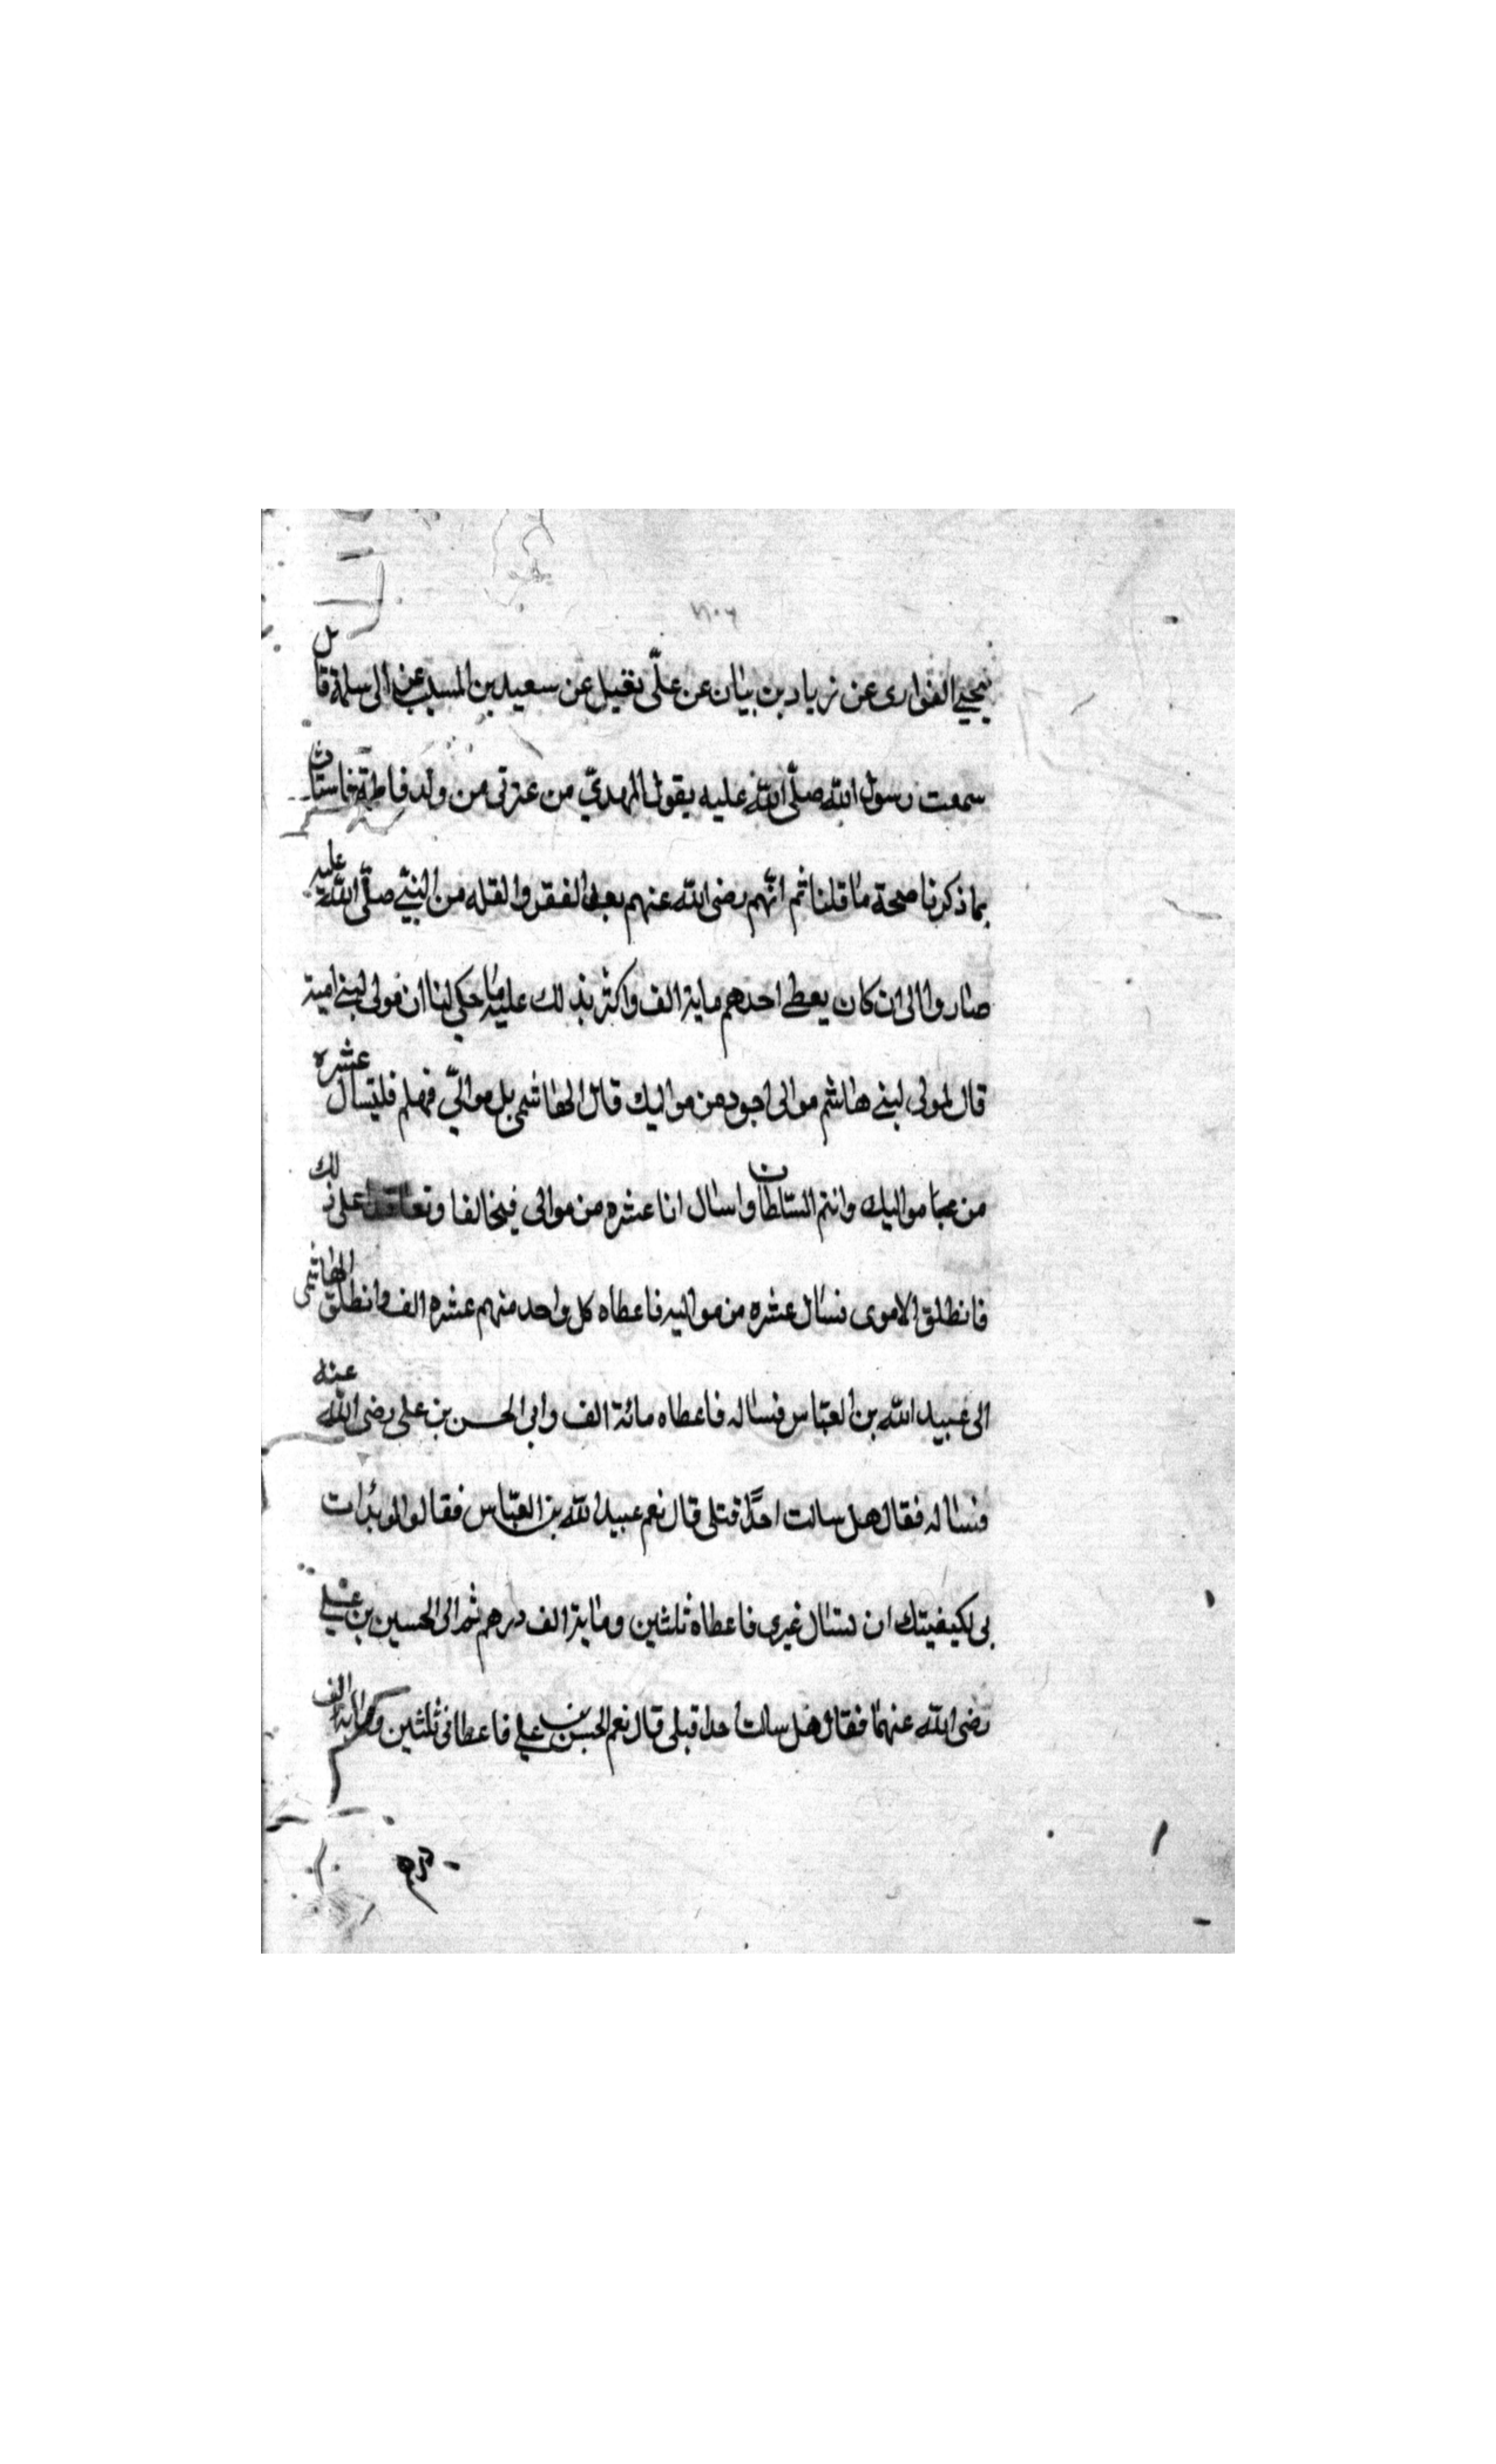 يحيى الفزارى عن زياد بن بيان عن علىّ نفيل عن سعيد بن المسيب عن ام سلمة قال
سمعت رسول الله صلّى الله عليه يقول المهدىّ من عترتى من ولد فاطمة
بما ذكرنا صحة ما قلنا ثم انّهم رضى الله عنهم بعد الفقر والقله من النبىّ صلّى الله عليه
صاروا الى ان كان يعطى احدهم ماية الف واكثر بذلك عليه ما حكى لنا ان مولى لبنى امية
قال لمولى لبنى هاشم موالى اجود من مواليك قال الهاشمى بل موالىّ فهلم فلتسال عشره
من مواليك وانتم السلطان واسال انا عشره من موالى فيخالفا وتعاقدا على ذلك
فانطلق الاموى فسال عشره من مواليه فاعطاه كل واحد منهم عشره الف وانطلق الهاشمى
الى عبيد الله بن العبّاس فساله فاعطاه مائة الف واتى الحسن بن على رضى الله عنه
فساله فقال هل سالت احدًا قبلى قال نعم عبيد الله بن العبّاس فقال لو بدات
بى لكيفيتك ان تسال غيرى فاعطاه ثلثين وماية الف درهم ثم اتى الحسين بن على
رضى الله عنهما فقال هل سالت احدا قبلى قال نعم الحسن بن على فاعطانى ثلثين وماية الف